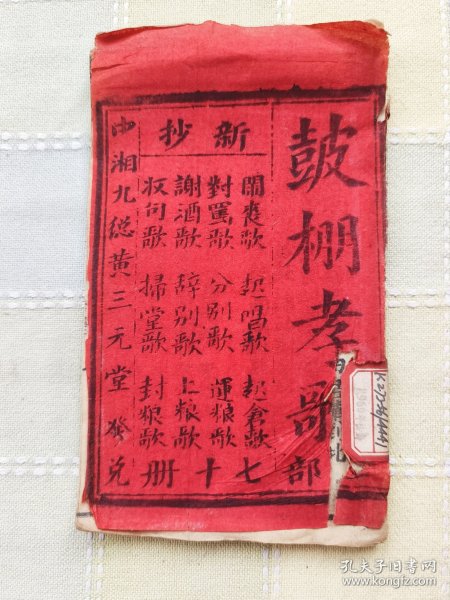 皷棚孝歌
新抄
鬧喪歌 起唱歌 起倉歌
對罵歌 分別歌 運粮歌
謝酒歌 辞別歌 上粮歌
収句歌 掃堂歌 封粮歌
部七十册
中湘九總黄三元堂發兌
孔夫子旧书网
www.kongfz.com